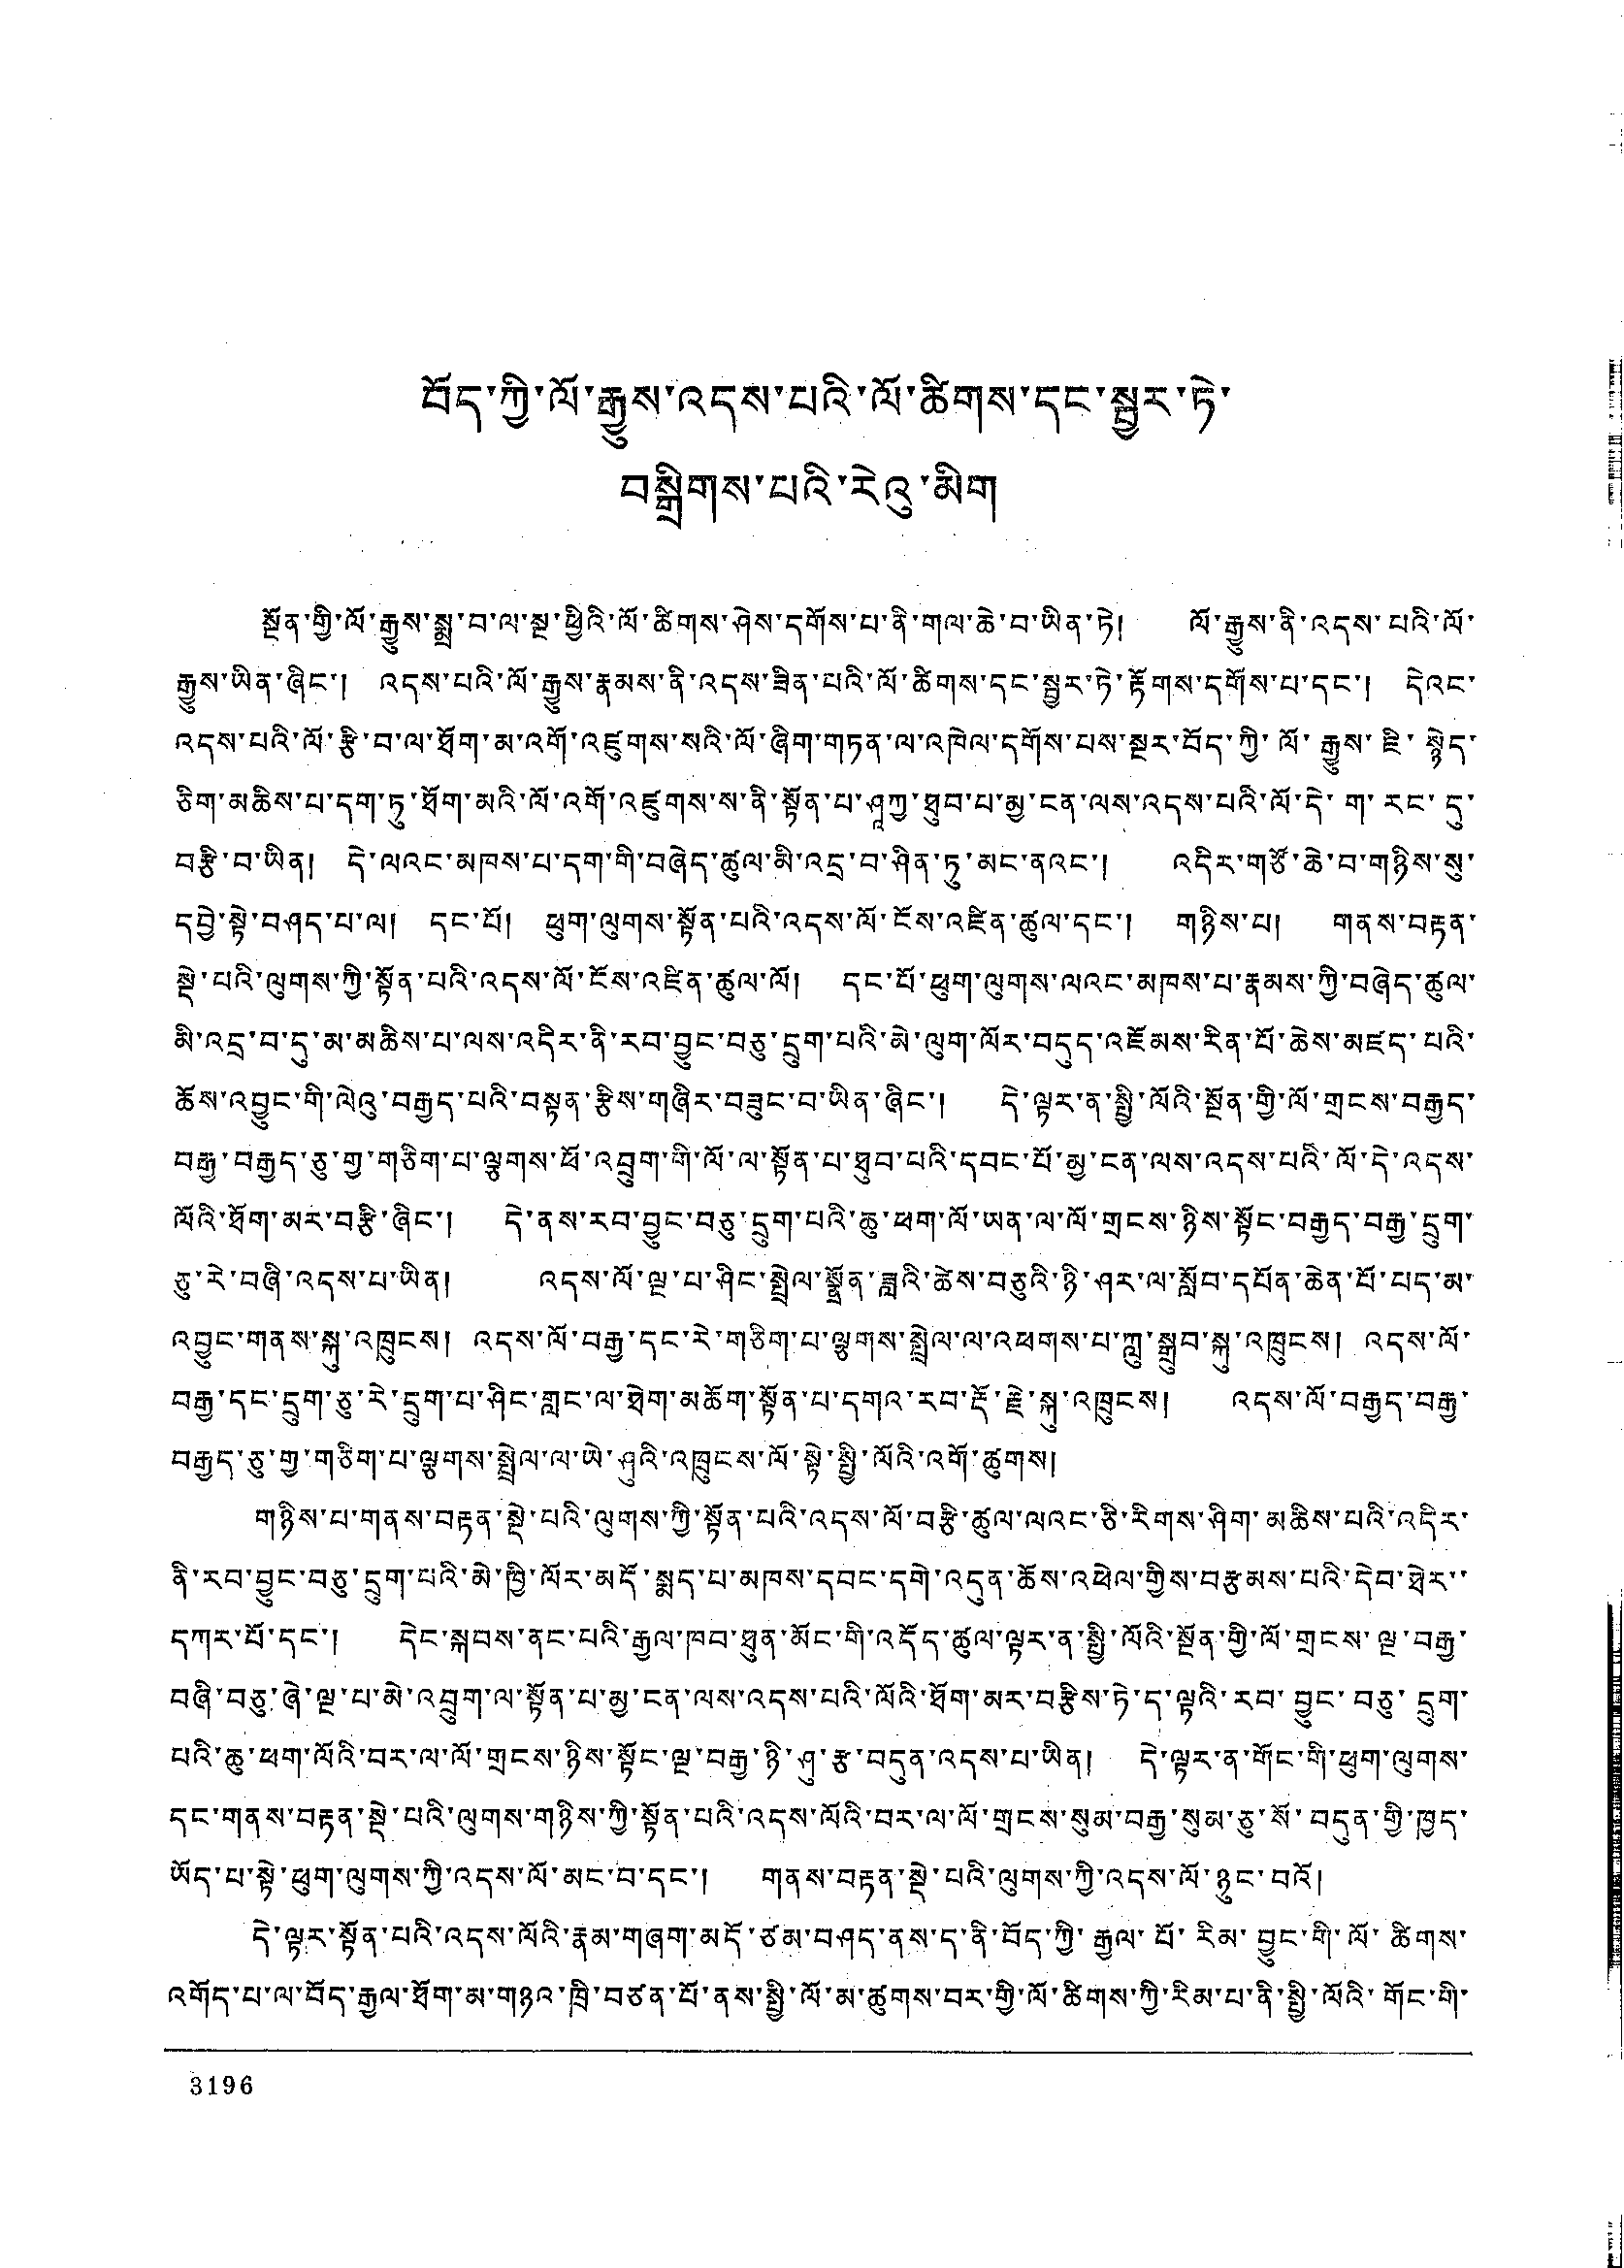 བོད་ཀྱི་ལོ་རྒྱུས་འདས་པའི་ལོ་ཚིགས་དང་སྦྱར་ཏེ་
བསྒྲིགས་པའི་རེའུ་མིག
སྔོན་གྱི་ལོ་རྒྱུས་སྨྲ་བ་ལ་སྔ་ཕྱིའི་ལོ་ཚིགས་ཤེས་དགོས་པ་ནི་གལ་ཆེ་བ་ཡིན་ཏེ། ལོ་རྒྱུས་ནི་འདས་པའི་ལོ་
རྒྱུས་ཡིན་ཞིང་། འདས་པའི་ལོ་རྒྱུས་རྣམས་ནི་འདས་ཟིན་པའི་ལོ་ཚིགས་དང་སྦྱར་ཏེ་རྟོགས་དགོས་པ་དང་། དེའང་
འདས་པའི་ལོ་རྩི་བ་ལ་ཐོག་མ་འགོ་འཛུགས་སའི་ལོ་ཞིག་གཏན་ལ་འཁེལ་དགོས་པས་སྔར་བོད་ཀྱི་ལོ་རྒྱུས་ཇི་སྙེད་
ཅིག་མཆིས་པ་དག་ཏུ་ཐོག་མའི་ལོ་འགོ་འཛུགས་ས་ནི་སྟོན་པ་ཤཱཀྱ་ཐུབ་པ་མྱ་ངན་ལས་འདས་པའི་ལོ་དེ་ག་རང་དུ་
བརྩི་བ་ཡིན། དེ་ལའང་མཁས་པ་དག་གི་བཞེད་ཚུལ་མི་འདྲ་བ་ཤིན་ཏུ་མང་ནའང་། འདིར་གཙོ་ཆེ་བ་གཉིས་སུ་
དབྱེ་སྟེ་བཤད་པ་ལ། དང་པོ། ཕུག་ལུགས་སྟོན་པའི་འདས་ལོ་ངོས་འཛིན་ཚུལ་དང་། གཉིས་པ། གནས་བརྟན་
སྡེ་པའི་ལུགས་ཀྱི་སྟོན་པའི་འདས་ལོ་ངོས་འཛིན་ཚུལ་ལོ། དང་པོ་ཕུག་ལུགས་ལའང་མཁས་པ་རྣམས་ཀྱི་བཞེད་ཚུལ་
མི་འདྲ་བ་དུ་མ་མཆིས་པ་ལས་འདིར་ནི་རབ་བྱུང་བཅུ་དྲུག་པའི་མེ་ལུག་ལོར་བདུད་འཇོམས་རིན་པོ་ཆེས་མཛད་པའི་
ཆོས་འབྱུང་གི་ལེའུ་བརྒྱད་པའི་བསྟན་རྩིས་གཞིར་བཟུང་བ་ཡིན་ཞིང་། དེ་ལྟར་ན་སྤྱི་ལོའི་སྔོན་གྱི་ལོ་གྲངས་བརྒྱད་
བརྒྱ་བརྒྱད་ཅུ་གྱ་གཅིག་པ་ལྕགས་ཕོ་འབྲུག་གི་ལོ་ལ་སྟོན་པ་ཐུབ་པའི་དབང་པོ་མྱ་ངན་ལས་འདས་པའི་ལོ་དེ་འདས་
ལོའི་ཐོག་མར་བརྩི་ཞིང་། དེ་ནས་རབ་བྱུང་བཅུ་དྲུག་པའི་ཆུ་ཕག་ལོ་ཡན་ལ་ལོ་གྲངས་ཉིས་སྟོང་བརྒྱད་བརྒྱ་དྲུག་
ཅུ་རེ་བཞི་འདས་པ་ཡིན། འདས་ལོ་ལྔ་པ་ཤིང་སྤྲེལ་སྨྲོན་ཟླའི་ཚེས་བཅུའི་ཉི་ཤར་ལ་སློབ་དཔོན་ཆེན་པོ་པད་མ་
འབྱུང་གནས་སྐུ་འཁྲུངས། འདས་ལོ་བརྒྱ་དང་རེ་གཅིག་པ་ལྕགས་སྤྲེལ་ལ་འཕགས་པ་ཀླུ་སྒྲུབ་སྐུ་འཁྲུངས། འདས་ལོ་
བརྒྱ་དང་དྲུག་ཅུ་རེ་དྲུག་པ་ཤིང་གླང་ལ་ཐེག་མཆོག་སྟོན་པ་དགའ་རབ་རྡོ་རྗེ་སྐུ་འཁྲུངས། འདས་ལོ་བརྒྱད་བརྒྱ་
བརྒྱད་ཅུ་གྱ་གཅིག་པ་ལྕགས་སྤྲེལ་ལ་ཡེ་ཤུའི་འཁྲུངས་ལོ་སྟེ་སྤྱི་ལོའི་འགོ་ཚུགས།
གཉིས་པ་གནས་བརྟན་སྡེ་པའི་ལུགས་ཀྱི་སྟོན་པའི་འདས་ལོ་བརྩི་ཚུལ་ལའང་ཅི་རིགས་ཤིག་མཆིས་པའི་འདིར་
ནི་རབ་བྱུང་བཅུ་དྲུག་པའི་མེ་ཁྱི་ལོར་མདོ་སྨད་པ་མཁས་དབང་དགེ་འདུན་ཆོས་འཕེལ་གྱིས་བརྩམས་པའི་དེབ་ཐེར་་
དཀར་པོ་དང་། དེང་སྐབས་ནང་པའི་རྒྱལ་ཁབ་ཐུན་མོང་གི་འདོད་ཚུལ་ལྟར་ན་སྤྱི་ལོའི་སྔོན་གྱི་ལོ་གྲངས་ལྔ་བརྒྱ་
བཞི་བཅུ་ཞེ་ལྔ་པ་མེ་འབྲུག་ལ་སྟོན་པ་མྱ་ངན་ལས་འདས་པའི་ལོའི་ཐོག་མར་བརྩིས་ཏེ་ད་ལྟའི་རབ་བྱུང་བཅུ་དྲུག་
པའི་ཆུ་ཕག་ལོའི་བར་ལ་ལོ་གྲངས་ཉིས་སྟོང་ལྔ་བརྒྱ་ཉི་ཤུ་རྩ་བདུན་འདས་པ་ཡིན། དེ་ལྟར་ན་གོང་གི་ཕུག་ལུགས་
དང་གནས་བརྟན་སྡེ་པའི་ལུགས་གཉིས་ཀྱི་སྟོན་པའི་འདས་ལོའི་བར་ལ་ལོ་གྲངས་སུམ་བརྒྱ་སུམ་ཅུ་སོ་བདུན་གྱི་ཁྱད་
ཡོད་པ་སྟེ་ཕུག་ལུགས་ཀྱི་འདས་ལོ་མང་བ་དང་། གནས་བརྟན་སྡེ་པའི་ལུགས་ཀྱི་འདས་ལོ་ཉུང་བའོ།
དེ་ལྟར་སྟོན་པའི་འདས་ལོའི་རྣམ་གཞག་མདོ་ཙམ་བཤད་ནས་ད་ནི་བོད་ཀྱི་རྒྱལ་པོ་རིམ་བྱུང་གི་ལོ་ཚིགས་
འགོད་པ་ལ་བོད་རྒྱལ་ཐོག་མ་གཉའ་ཁྲི་བཙན་པོ་ནས་སྤྱི་ལོ་མ་ཚུགས་བར་གྱི་ལོ་ཚིགས་ཀྱི་རིམ་པ་ནི་སྤྱི་ལོའི་གོང་གི་
3196